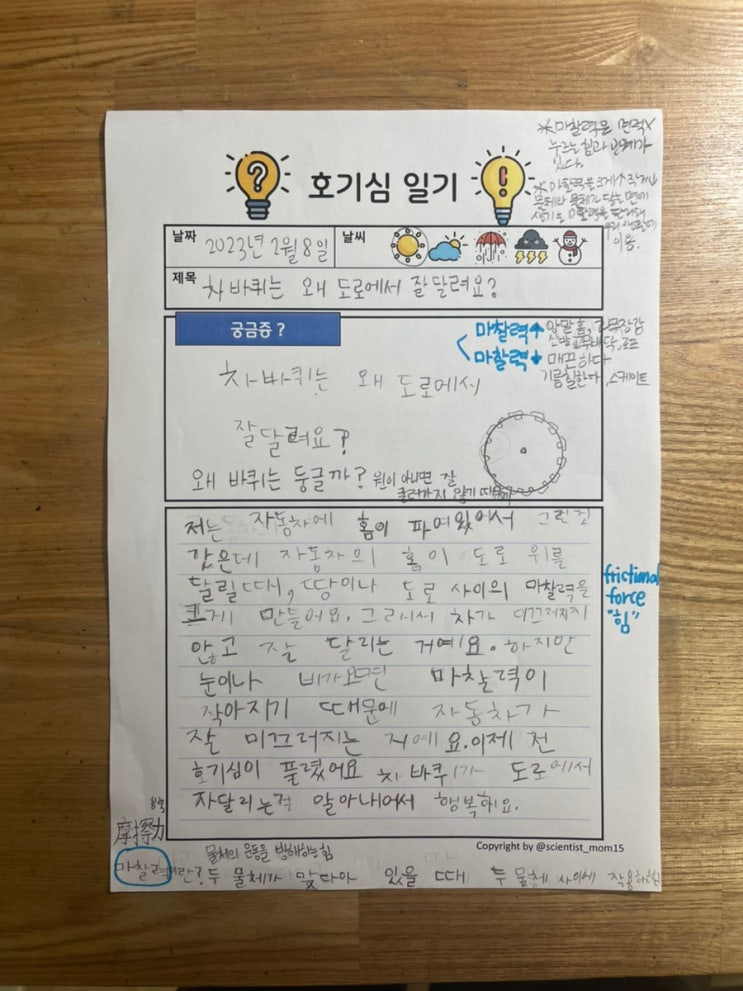 *마찰력은 면적X
누르는 힘과 관계가
있다.
*마찰력을 크게↑ 작게↓
물체와 물체가 닿는 면에
생기는 마찰력을
이용.
호기심 일기
날짜 2023년 2월 8일 날씨
제목 차 바퀴는 왜 도로에서 잘 달려요?
궁금증 ?
마찰력↑ 양말 홈, 고무장갑
신발 고무바닥, 로프
마찰력↓ 매끈하다
기름칠한다, 스케이트
차 바퀴는 왜 도로에서
잘 달려요?
왜 바퀴는 둥글까? 원이 아니면 잘
굴러가지 않기 때문에
저는 자동차에 홈이 파여있어서 그런 것
같은데 자동차의 홈이 도로 위를
달릴 때, 땅이나 도로 사이의 마찰력을
크게 만들어요. 그래서 차가 미끄러지지
않고 잘 달리는 거예요. 하지만
눈이나 비가오면 마찰력이
작아지기 때문에 자동차가
잘 미끄러지는 거예요. 이제 전
호기심이 풀렸어요 차 바퀴가 도로에서
자달리는걸 알아내어서 행복해요.
frictional
force
"힘"
摩擦力
Copyright by @scientist_mom15
물체의 운동을 방해하는 힘
마찰력이란? 두 물체가 맞다아 있을 때 두 물체 사이에 작용하는 힘